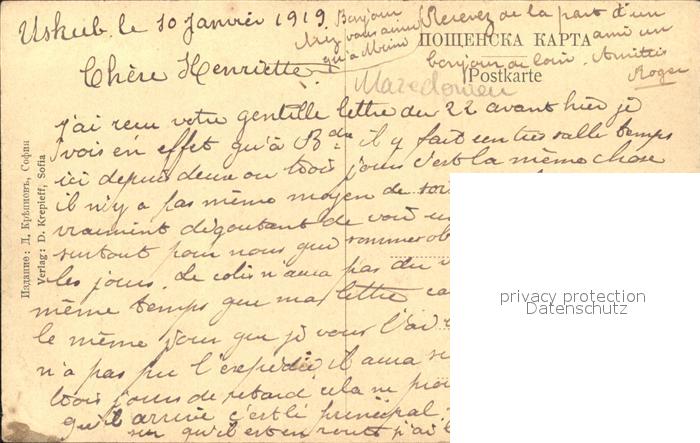 Uskub. le 10 Janvier 1919.
Bonjour
Receves de la part d'un
ami un
bonjour de loin. Amitiés
Roger
ПОЩЕНСКА КАРТА
Postkarte
Mazedonien
Chère Henriette.
j'ai recu votre gentille lettre du 22 avant hier je
vois en effet qu'à Bdx il y fait un tres salle temps
ici depuis deux ou trois jours c'est la même chose
il n'y a pas même moyen de
vraiment dégoutant de voir
surtout pour nous que
les jours. Le colis n'aura pas du
même temps que ma lettre
le même jour que je vous l'ai
n'a pas pu l'expédié il aura
trois jours de retard cela ne
qu'il arrive c'est le principal.
qu'il est en route j'ai
Издание: Д. Крѣпиовъ, София
Verlag: D. Krepieff, Sofia
privacy protection
Datenschutz